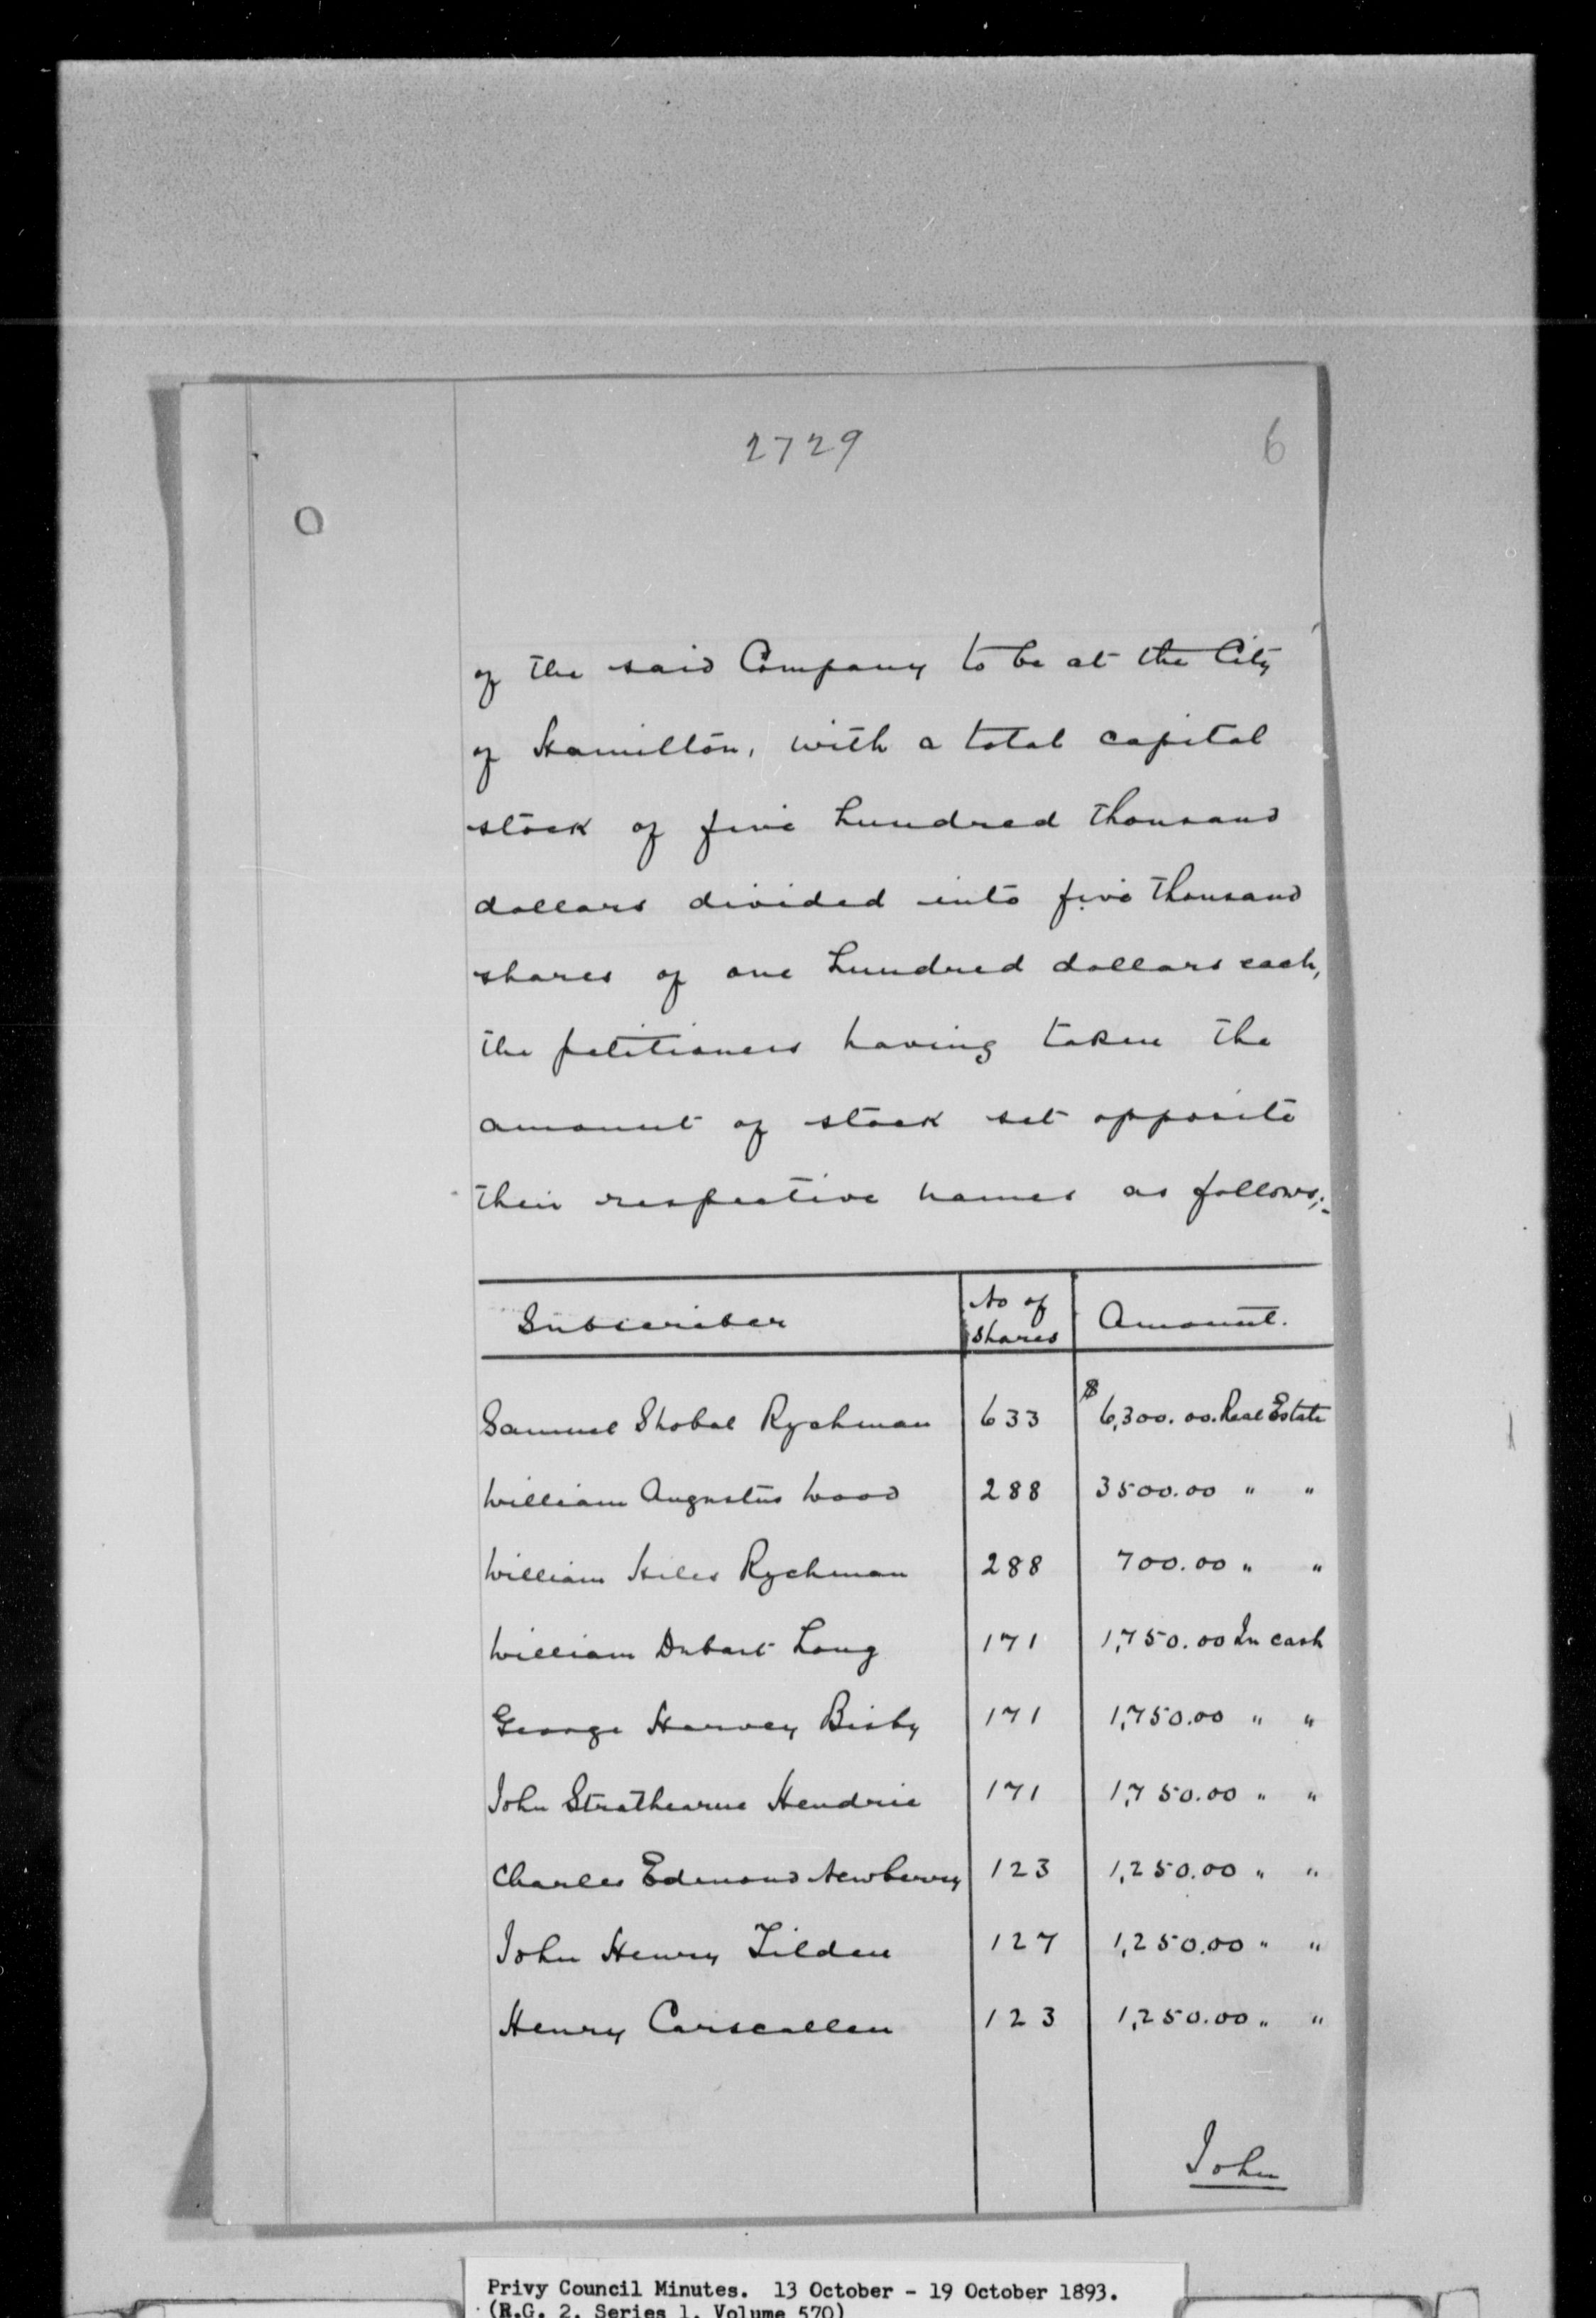 2729
6
of the said Company to be at the City
of Hamilton, with a total capital
stock of five hundred thousand
dollars divided into five thousand
shares of one hundred dollars each,
the petitioners having taken the
amount of stock set opposite
their respective names as follows;-
Subscriber | No of shares | Amount.
Samuel Shobal Ryckman | 633 | $6,300.00. Real Estate
William Augustus Wood | 288 | 3500.00 " "
William Hiles Ryckman | 288 | 700.00 " "
William Dubart Long | 171 | 1,750.00 In cash
George Harvey Bisby | 171 | 1,750.00 " "
John Strathearne Hendrie | 171 | 1,750.00 " "
Charles Edmond Newberry | 123 | 1,250.00 " "
John Henry Tilden | 127 | 1,250.00 " "
Henry Carscallen | 123 | 1,250.00 " "
John
Privy Council Minutes. 13 October - 19 October 1893.
(R.G. 2, Series 1, Volume 570)